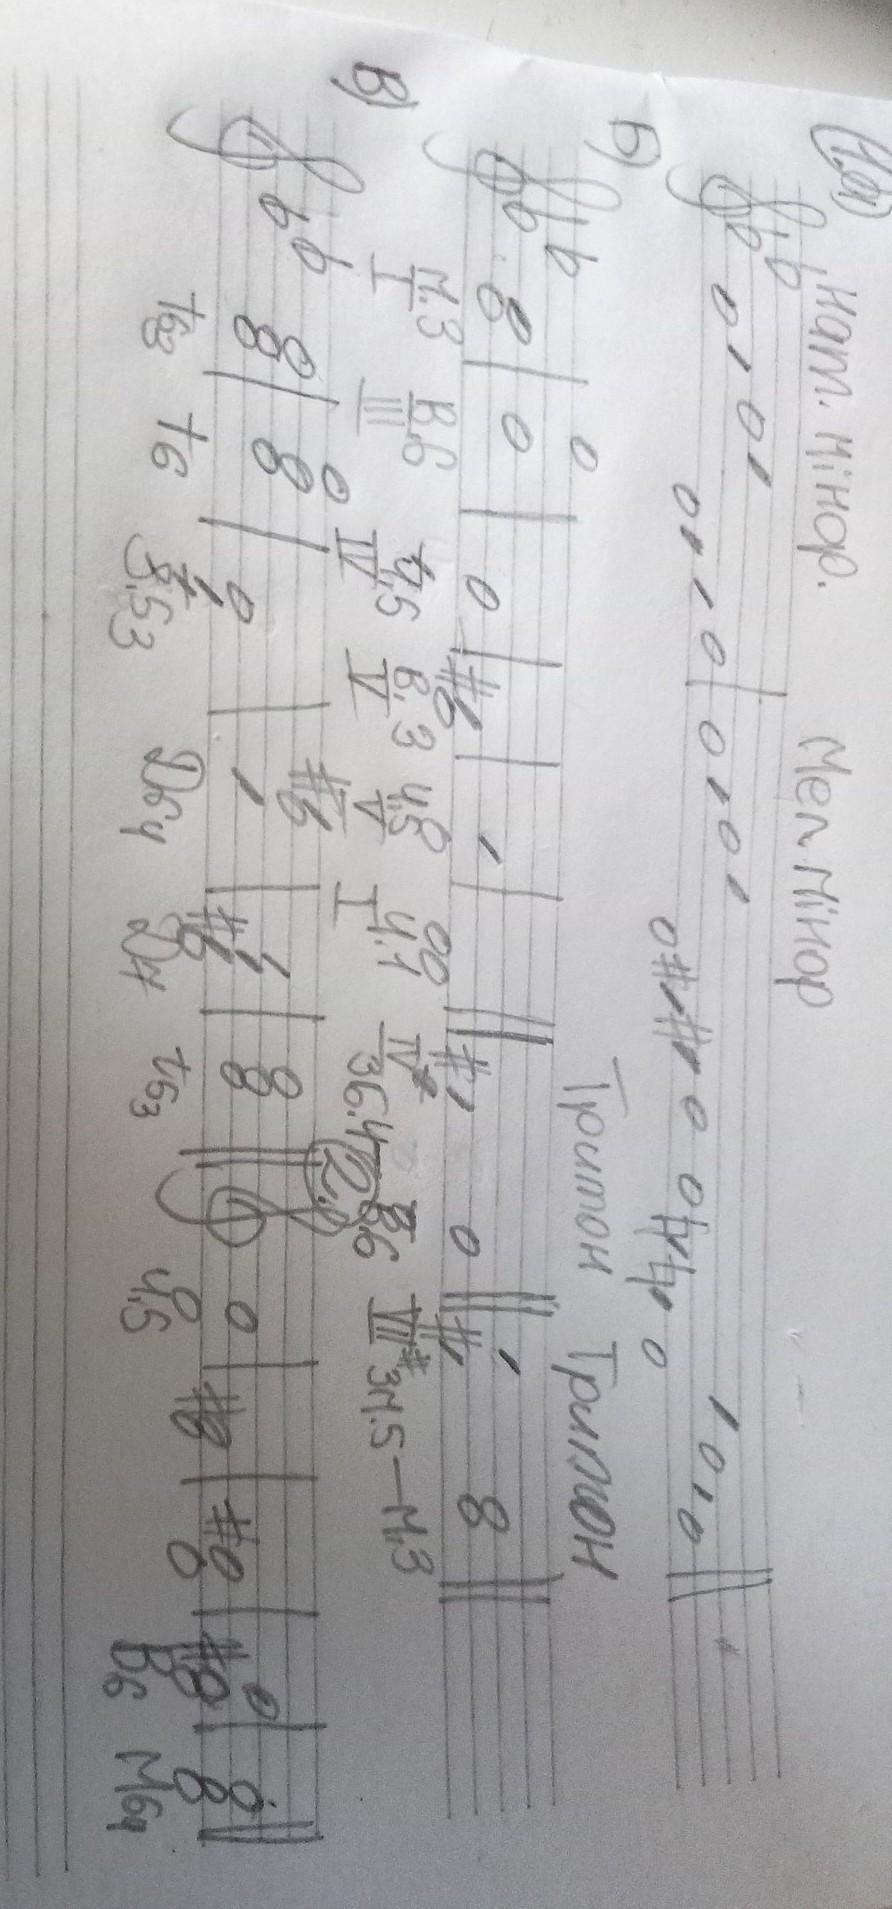 1.а) Нат. мінор. Мел мінор
б) Тритон Тритон
м.3 В.6 ч.5 В.3 ч.5 ч.1 зб.4 В.6 зм.5 – м.3
I III IV V V I IV VII#
в) 2.
t53 t6 S53 D64 D7 t53 ч.5 Б6 М64